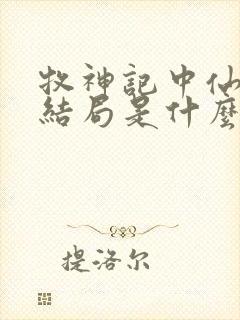 牧神記中仙
結局是什麼
提洛尔